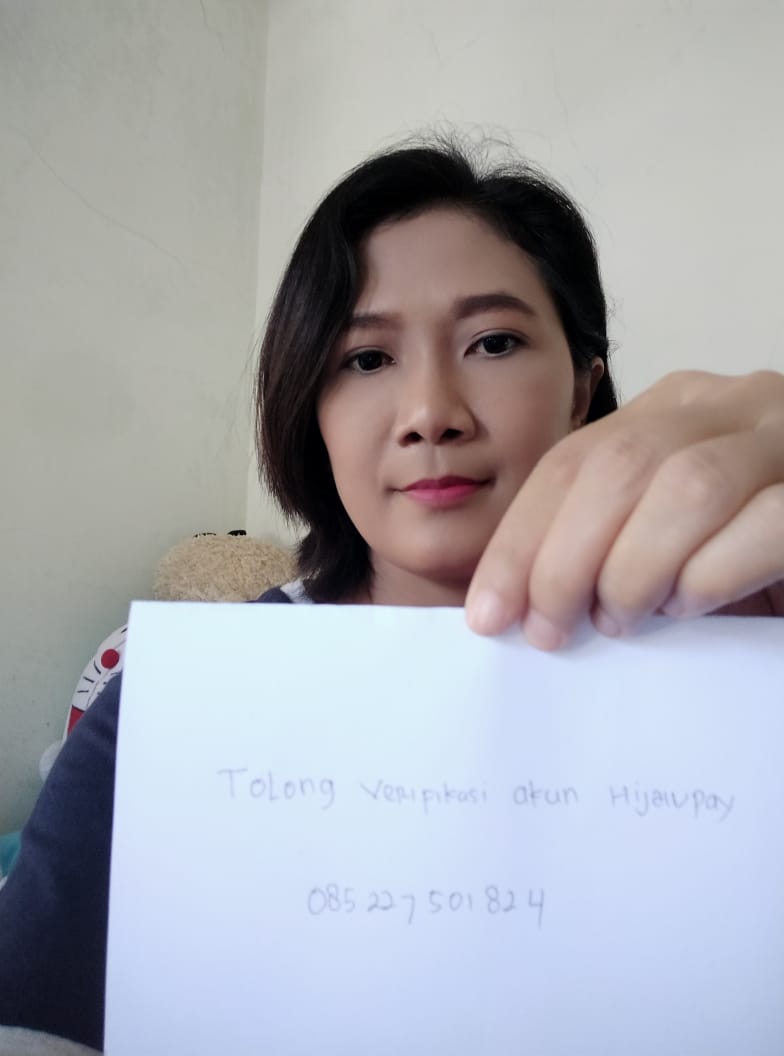 Tolong verifikasi akun Hijaupay
085 227 501 824